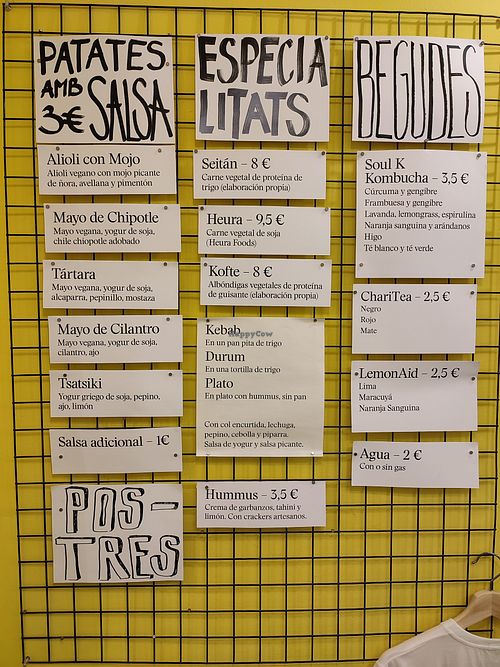 PATATES
AMB
3€ SALSA
Alioli con Mojo
Alioli vegano con mojo picante
de ñora, avellana y pimentón
Mayo de Chipotle
Mayo vegana, yogur de soja,
chile chiopotle adobado
Tártara
Mayo vegana, yogur de soja,
alcaparra, pepinillo, mostaza
Mayo de Cilantro
Mayo vegana, yogur de soja,
cilantro, ajo
Tsatsiki
Yogur griego de soja, pepino,
ajo, limón
Salsa adicional – 1€
POS-
TRES
ESPECIA
LITATS
Seitán – 8 €
Carne vegetal de proteína de
trigo (elaboración propia)
Heura – 9,5 €
Carne vegetal de soja
(Heura Foods)
Kofte – 8 €
Albóndigas vegetales de proteína
de guisante (elaboración propia)
Kebab
HappyCow
En un pan pita de trigo
Durum
En una tortilla de trigo
Plato
En plato con hummus, sin pan
Con col encurtida, lechuga,
pepino, cebolla y piparra.
Salsa de yogur y salsa picante.
Hummus – 3,5 €
Crema de garbanzos, tahini y
limón. Con crackers artesanos.
BEGUDES
Soul K
Kombucha – 3,5 €
Cúrcuma y gengibre
Frambuesa y gengibre
Lavanda, lemongrass, espirulina
Naranja sanguina y arándanos
Higo
Té blanco y té verde
ChariTea – 2,5 €
Negro
Rojo
Mate
LemonAid – 2,5 €
Lima
Maracuyá
Naranja Sanguina
Agua – 2 €
Con o sin gas